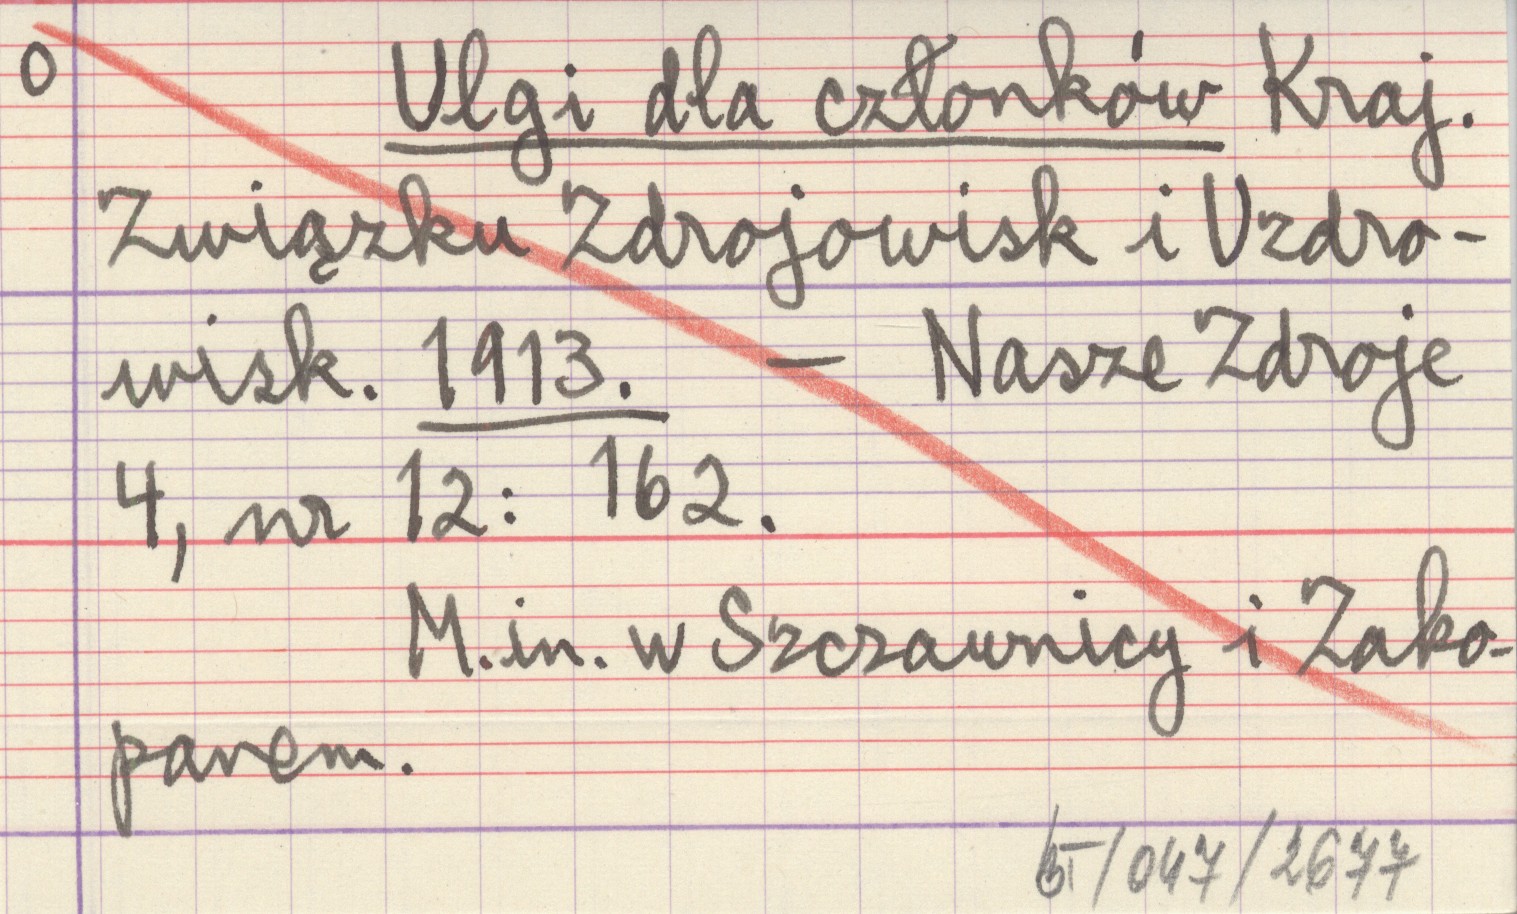 0 Ulgi dla członków Kraj.
Związku Zdrojowisk i Uzdro-
wisk. 1913. – Nasze Zdroje
4, nr 12: 162.
M.in. w Szczawnicy i Zako-
panem.
/047/2677